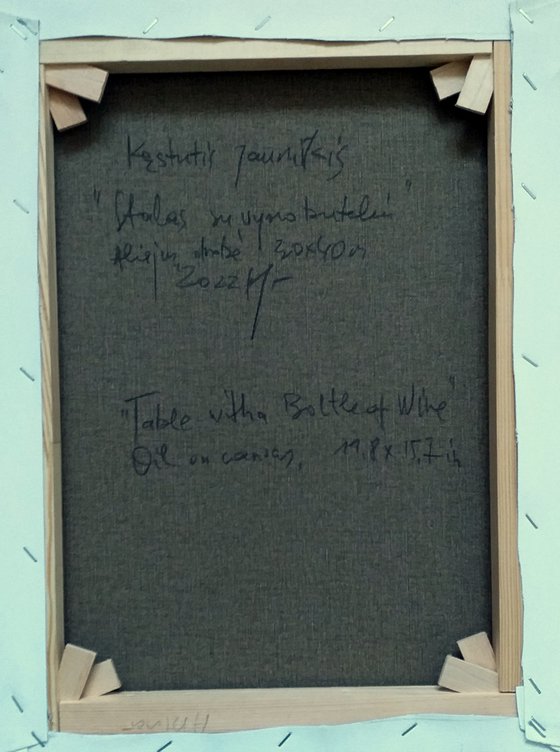 Kęstutis Jauniškis
"Stalas su vyno buteliu"
Aliejus, drobė, 30x40cm
2022 m
"Table with a Bottle of Wine"
Oil on canvas, 11.8 x 15.7 in